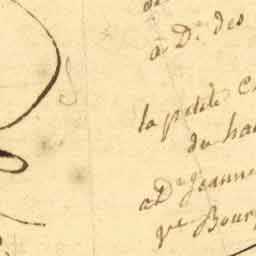 à D.e des
la petite
du hau
a D.e Jeanne
v.e Bourg